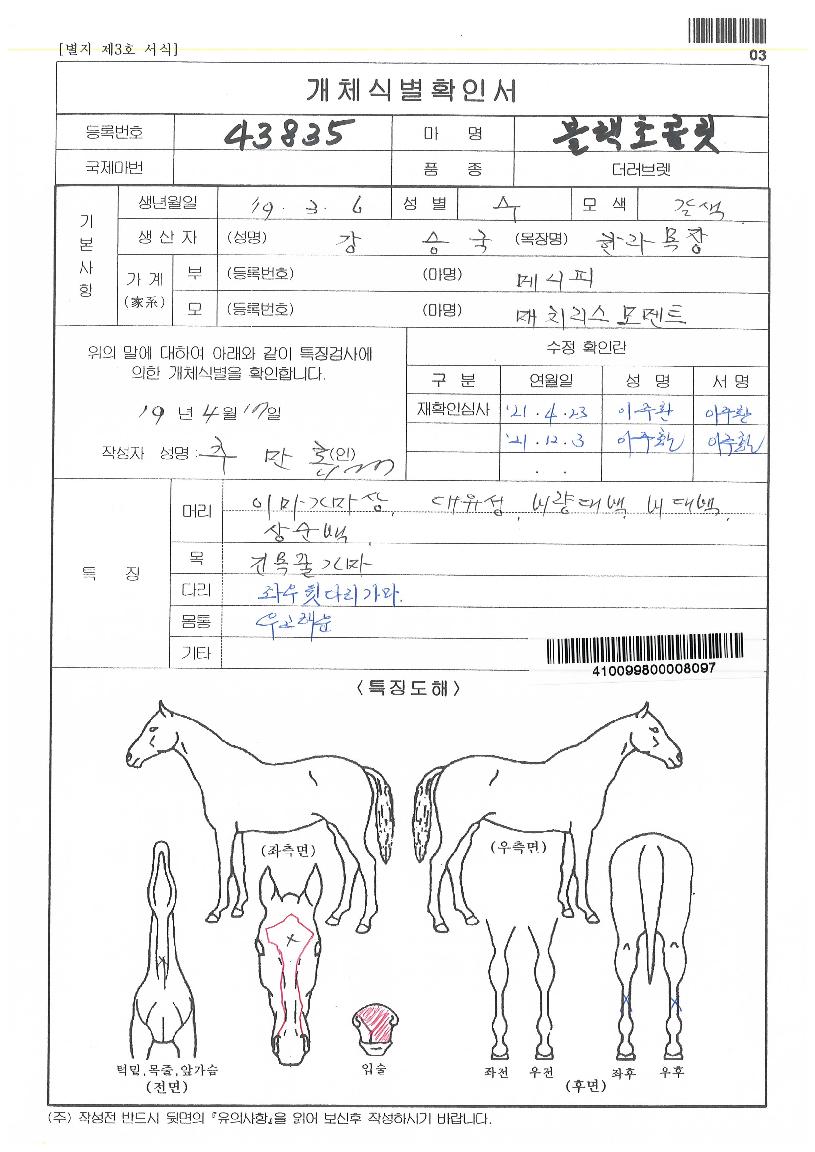 [별지 제3호 서식]
03
개체식별확인서
등록번호 43835 마 명 블랙초콜릿
국제마번 품 종 더러브렛
기본사항
생년월일 19. 3. 6 성 별 수 모 색 갈색
생 산 자 (성명) 강 승 국 (목장명) 한라목장
가 계 (家系) 부 (등록번호) (마명) 메니피
모 (등록번호) (마명) 매치리스모멘트
위의 말에 대하여 아래와 같이 특징검사에
의한 개체식별을 확인합니다.
19 년 4 월 17 일
작성자 성명: 만 (인)
수정 확인란
구 분 연월일 성 명 서 명
재확인심사 '21. 4. 23 이주환 이주환
'21. 12. 3 이주환 이주환
. .
특 징
머리 이마가마상, 대유성, 비량대백, 비대백,
상순백
목
다리 좌우뒷다리가마.
몸통
기타
410099800008097
<특징도해>
(좌측면)
(우측면)
턱밑,목줄,앞가슴
(전면)
입술
좌전 우전 좌후 우후
(후면)
(주) 작성전 반드시 뒷면의 『유의사항』을 읽어 보신후 작성하시기 바랍니다.